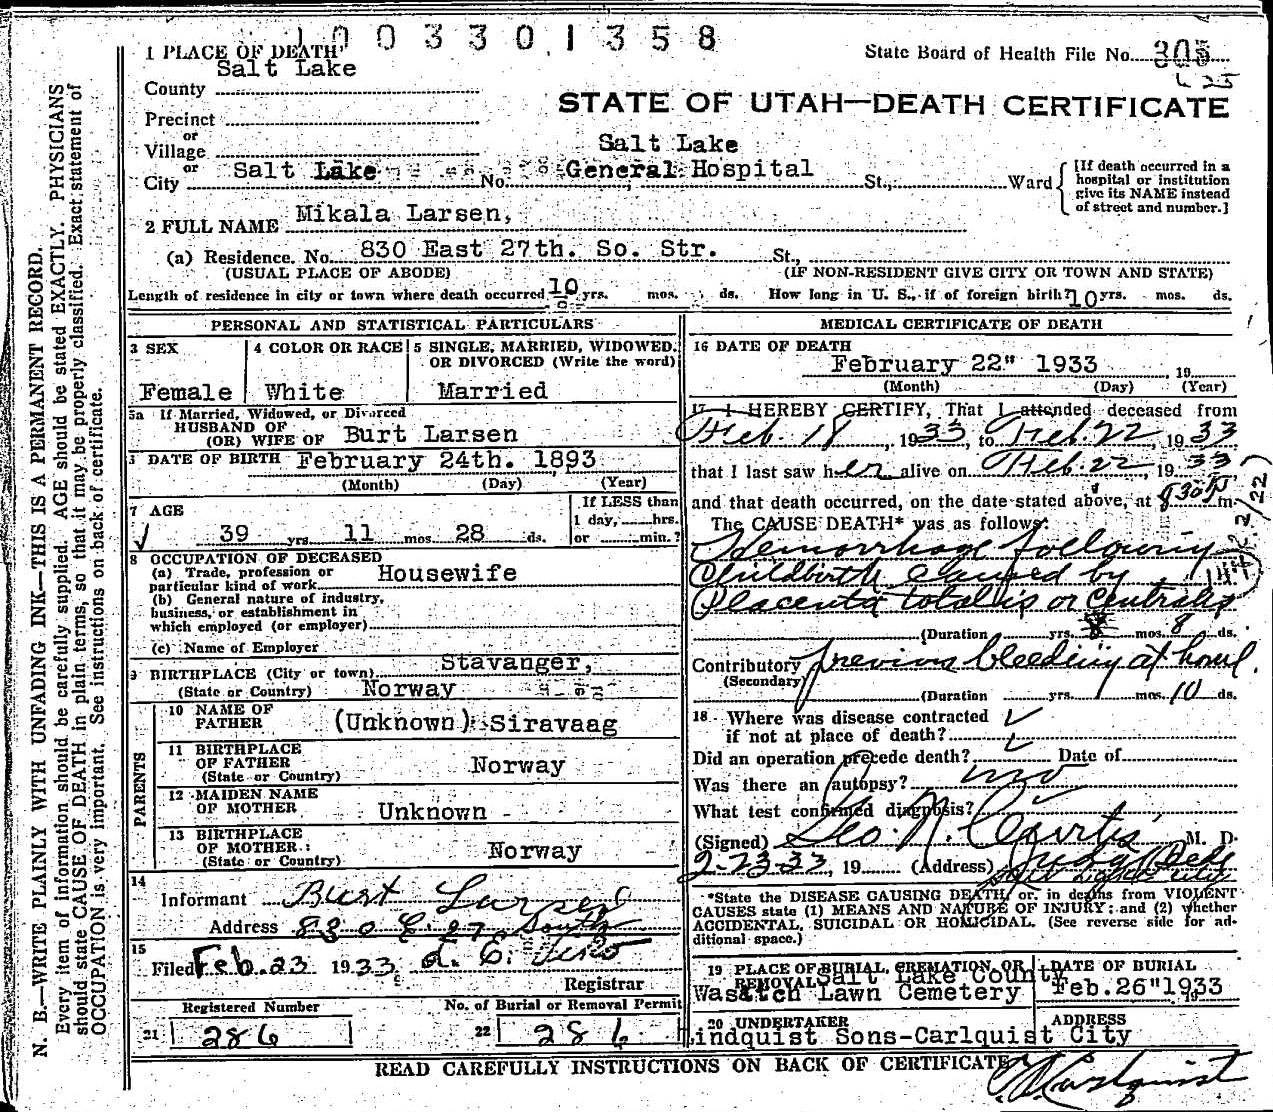 1003301358
1 PLACE OF DEATH
State Board of Health File No. 305
Salt Lake
County
STATE OF UTAH—DEATH CERTIFICATE
Precinct
or
Village
Salt Lake
or
City Salt Lake No. General Hospital St., Ward
[If death occurred in a
hospital or institution
give its NAME instead
of street and number.]
2 FULL NAME Mikala Larsen,
(a) Residence. No. 830 East 27th. So. Str. St.,
(USUAL PLACE OF ABODE) (IF NON-RESIDENT GIVE CITY OR TOWN AND STATE)
Length of residence in city or town where death occurred 10 yrs. mos. ds. How long in U. S., if of foreign birth? 10 yrs. mos. ds.
PERSONAL AND STATISTICAL PARTICULARS
3 SEX
Female
4 COLOR OR RACE
White
5 SINGLE, MARRIED, WIDOWED,
OR DIVORCED (Write the word)
Married
5a If Married, Widowed, or Divorced
HUSBAND OF
(OR) WIFE OF Burt Larsen
DATE OF BIRTH February 24th. 1893
(Month) (Day) (Year)
7 AGE
39 yrs 11 mos. 28 ds.
If LESS than
1 day, hrs.
or min.?
8 OCCUPATION OF DECEASED
(a) Trade, profession or
particular kind of work Housewife
(b) General nature of industry,
business, or establishment in
which employed (or employer)
(c) Name of Employer
9 BIRTHPLACE (City or town) Stavanger,
(State or Country) Norway
PARENTS
10 NAME OF
FATHER (Unknown) Siravaag
11 BIRTHPLACE
OF FATHER
(State or Country) Norway
12 MAIDEN NAME
OF MOTHER Unknown
13 BIRTHPLACE
OF MOTHER
(State or Country) Norway
14
Informant Burt Larsen
Address 830 E. 27 South
15
Filed Feb. 23 1933
Registrar
Registered Number
21 286
No. of Burial or Removal Permit
22 286
MEDICAL CERTIFICATE OF DEATH
16 DATE OF DEATH
February 22" 1933, 19
(Month) (Day) (Year)
17 I HEREBY CERTIFY, That I attended deceased from
Feb. 18, 1933, to Feb. 22, 1933
that I last saw her alive on Feb. 22, 1933
and that death occurred, on the date stated above, at 830 P m.
The CAUSE DEATH* was as follows:
Hemorrhage following
Childbirth caused by
Placenta totalis or Centralis
(Duration yrs. mos. 8 ds.
Contributory previous bleeding at home.
(Secondary)
(Duration yrs. 1 mos. 10 ds.
18 Where was disease contracted
if not at place of death?
Did an operation precede death? Date of
Was there an autopsy? no
What test confirmed diagnosis?
(Signed) Geo. N. Curtis M. D.
2-23-33, 19 (Address) Judge Bldg
*State the DISEASE CAUSING DEATH, or, in deaths from VIOLENT
CAUSES state (1) MEANS AND NATURE OF INJURY; and (2) whether
ACCIDENTAL, SUICIDAL OR HOMICIDAL. (See reverse side for ad-
ditional space.)
19 PLACE OF BURIAL, CREMATION, OR
REMOVAL Salt Lake County
Wasatch Lawn Cemetery
DATE OF BURIAL
Feb. 26" 1933
20 UNDERTAKER
Lindquist Sons-Carlquist
ADDRESS
City
READ CAREFULLY INSTRUCTIONS ON BACK OF CERTIFICATE
N. B.—WRITE PLAINLY WITH UNFADING INK—THIS IS A PERMANENT RECORD.
Every item of information should be carefully supplied. AGE should be stated EXACTLY. PHYSICIANS
should state CAUSE OF DEATH in plain terms, so that it may be properly classified. Exact statement of
OCCUPATION is very important. See instructions on back of certificate.